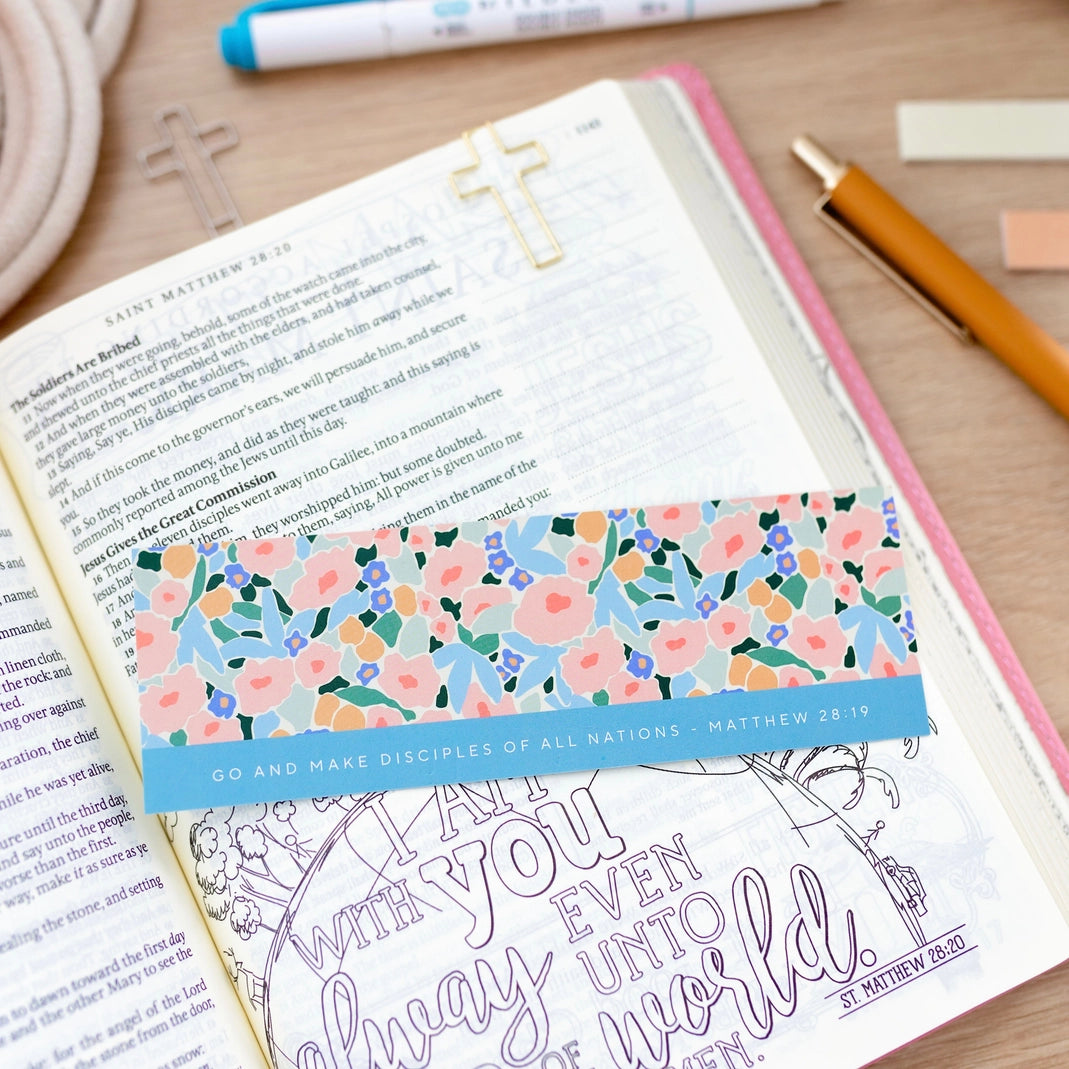 SAINT MATTHEW 28:20
The Soldiers Are Bribed
11 Now when they were going, behold, some of the watch came into the city,
and shewed unto the chief priests all the things that were done.
12 And when they were assembled with the elders, and had taken counsel,
they gave large money unto the soldiers,
13 Saying, Say ye, His disciples came by night, and stole him away while we
slept.
14 And if this come to the governor's ears, we will persuade him, and secure
you.
15 So they took the money, and did as they were taught: and this saying is
commonly reported among the Jews until this day.
Jesus Gives the Great Commission
16 Then eleven disciples went away into Galilee, into a mountain where
Jesus had them.
17 And they worshipped him: but some doubted.
18 to them, saying, All power is given unto me
in he
19 them in the name of the
Fat manded you:
GO AND MAKE DISCIPLES OF ALL NATIONS - MATTHEW 28:19
I AM
WITH you EVEN
alway UNTO
OF world.
MEN.
ST. MATTHEW 28:20
us and
named
mmanded
n linen cloth,
the rock: and
ted.
ing over against
aration, the chief
hile he was yet alive,
ure until the third day,
nd say unto the people,
worse than the first.
way, make it as sure as ye
ealing the stone, and setting
n so dawn toward the first day
e and the other Mary to see the
e: for the angel of the Lord
the stone from the door,
snow: